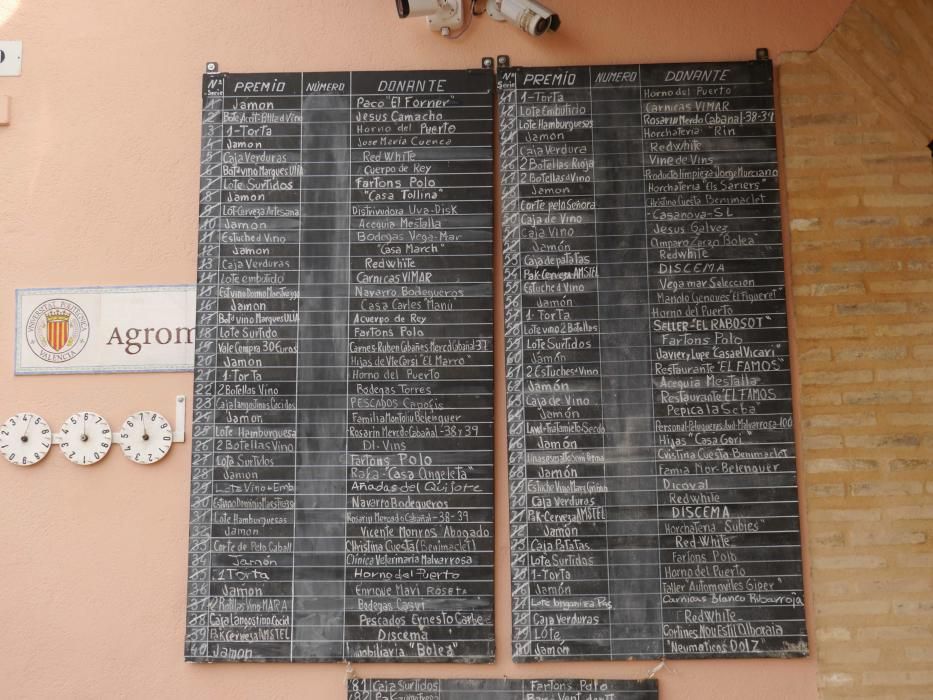 Nº Serie PREMIO NÚMERO DONANTE
1 Jamon Paco "El Forner"
2 Jesus Camacho
3 1-Torta Horno del Puerto
4 Jamon Jose Maria Cuenca
5 Caja Verduras Red White
6 Cuerpo de Rey
7 Lote Surtidos Fartons Polo
8 Jamon "Casa Tollina"
9 Lot-Cerveza Artesana Distrivudora Uva-Disk
10 Jamon Acequia Mestalla
11 Estuche d Vino Bodegas Vega-Mar
12 Jamon "Casa March"
13 Caja Verduras Red White
14 Lote embutido Carnicas VIMAR
15 Navarro Bodegueros
16 Jamon Casa Carles "Manu"
17 Acuerpo de Rey
18 Lote Surtido Fartons Polo
19 Vale Compra 30 Euros Carnes-Ruben Cabañes Mercd Cabanal 37
20 Jamon Hijas de Vte Garsi "EL Marro"
21 1-Torta Horno del Puerto
22 2 Botellas Vino Bodegas Torres
23 Caja Langostinos Cocidos PESCADOS
24 Jamon Familia Montoliu Belenguer
25 Lote Hamburguesa Rosarin Mercdo Cabañal-38 y 39
26 2 Botellas Vino DI-Vins
27 Lote Surtidos Fartons Polo
28 Jamon Rafa-"Casa Angeleta"
29 Lote Vino+Emb Añadas del Quijote
30 Navarro Bodegueros
31 Lote Hamburguesas Rosarin Mercado Cabañal-38-39
32 Jamon Vicente Monros Abogado
33 Corte de Pelo Caball Christina Cuesta (Benimaclet)
34 Jamón Clinica Veterinaria Malvarrosa
35 1 Torta Horno del Puerto
36 Jamon Enrique Mavi Roseta
37 2 Botillas Vino-MARA Bodegas
38 Caja Langostino Cocid Pescados Ernesto Carbe
39 Pak Cerveza AMSTEL Discema
40 Jamon Imobiliaria "Bolea"
Nº Serie PREMIO NUMERO DONANTE
41 1-Torta Horno del Puerto
42 Lote Embuticio Carnicas VIMAR
43 Lote Hamburguesas Rosarin Mercdo Cabanal-38-39
44 Jamon Horchateria "Rin"
45 Caja Verdura Redwhite
46 2 Botellas Rioja Vine de Vins
47 2 Botellas d Vino Producto limpieza Jorge Murciano
48 Jamon Horchateria "Els Sariers"
49 Corte pelo Señora Christina Cuesta Benimaclet
50 Caja de Vino -Casanova-S.L
51 Caja Vino Jesus Galvez
52 Jamón Amparo Zarzo Bolea"
53 Caja de patatas Redwhite
54 Pak-Cerveza AMSTEL DISCEMA
55 Estuche d Vino Vega mar Seleccion
56 Jamón Manolo Genoves "El Figueret"
57 1-Torta Horno del Puerto
58 Lote vino 2 Botellas SELLER-"EL RABOSOT"
59 Lote Surtidos Fartons Polo
60 Jamón Javier y Lupe Casa el Vicari
61 2 Estuches d Vino Restaurante "EL FAMOS"
62 Jamón Acequia Mestalla
63 Caja de Vino Restaurante "EL FAMOS
64 Jamón Pepica la Seba"
65 Personal-Peluqueros Avd-Malvarrosa-100
66 Jamón Hijas "Casa Gori"
67 Cristina Cuesta-Benimaclet
68 Jamón Familia Mor-Belenguer
69 Dicoval
70 Caja Verduras Redwhite
71 Pak-Cerveza AMSTEL DISCEMA
72 Jamon Horchateria Subies"
73 Caja Patatas Red-White
74 Lote Surtidos Fartons Polo
75 1-Torta Horno del Puerto
76 Jamon Taller "Automoviles Giper"
77 Lote longaniza Pas, Carnicas Blanco Ribarroja
78 Caja Verduras Red White
79 Lote Cortines Nou Estil Alboraia
80 Jamón "Neumaticos DOLZ"
81 Caja Surtidos Fartons Polo
UNIVERSITAT POLITECNICA VALENCIA
Agrom